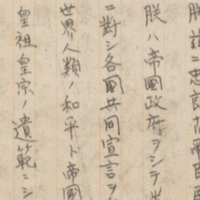 朕茲ニ忠良ナ
朕ハ帝國政府ヲシテ
ニ對シ各國共同宣言ヲ
世界人類ノ和平ト帝國
皇祖皇宗ノ遺範ニシ